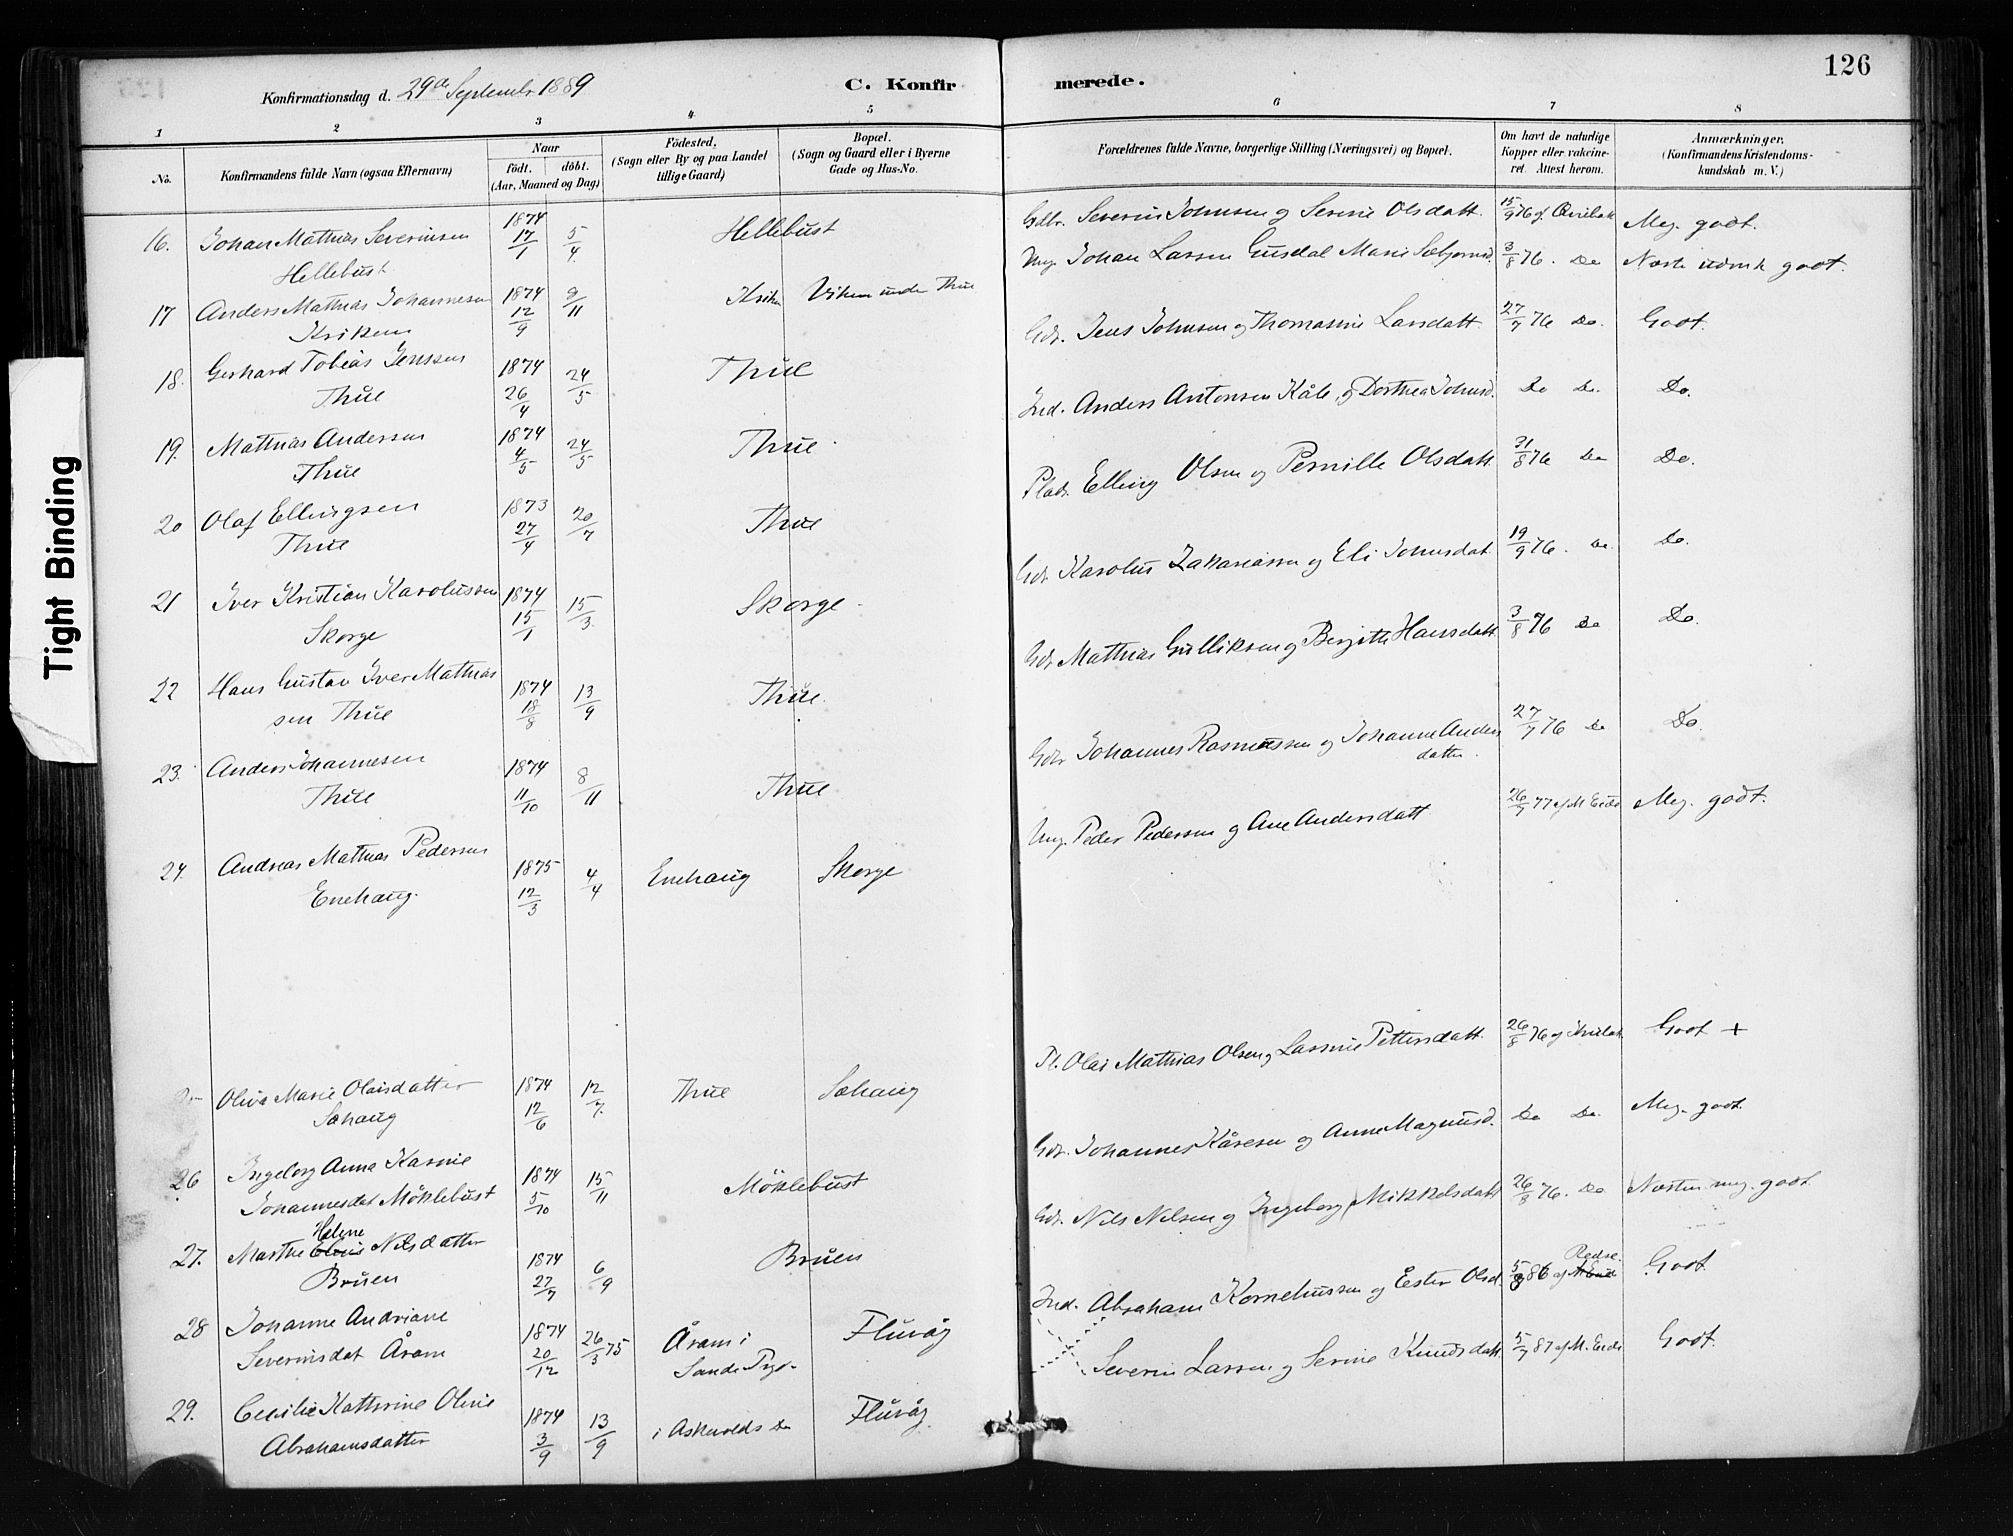 126
Konfirmationsdag d. 29de September 1889
C. Konfirmerede.
1 2 3 4 5 6 7 8
No.
Konfirmandens fulde Navn (ogsaa Efternavn)
Naar
födt. döbt.
(Aar, Maaned og Dag)
Födested.
(Sogn eller By og paa Landet
tillige Gaard)
Bopæl.
(Sogn og Gaard eller i Byerne
Gade og Hus-No.
Forældrenes fulde Navne, borgerlige Stilling (Næringsvei) og Bopæl.
Om havt de naturlige
Kopper eller vakcine-
ret. Attest herom.
Anmærkninger.
(Konfirmandens Kristendoms-
kundskab m. V.)
16. Johan Mathias Severinsen 1874 17/1 5/4 Hellebust Gdbr. Severin Johnsen og Serine Olsdatt. 15/9 76 af Meg. godt.
Hellebust
17 Anders Mathias Johannesen 1874 12/9 9/11 Kriken Viken under Thue Ung. Johan Larsen Gusdal Marie 3/8 76. Do godt.
Kriken
18. Gerhard Tobias Jenssen 1874 26/4 24/5 Thue Gdr. Jens Johnsen og Thomasine Larsdatt. 27/7 76 Do. Godt.
Thue
19. Mathias Andersen 1874 4/5 24/5 Thue. Ind. Anders Antonsen Kåle og Dorthea Johnsd. Do Do. Do.
Thue
20 Olaf Ellingsen 1873 27/4 20/7 Thue Plads. Elling Olsen og Pernille Olsdatt. 31/8 76 Do Do.
Thue
21 Iver Kristian Karolussen 1874 15/1 15/3 Skorge. Gdr. Karolus Zakariassen og Eli Johnsdat. 19/9 76. Do. Do.
Skorge
22 Hans Gustav Iver Mathias 1874 18/8 13/9 Thue. Gdr Mathias Gulliksen og Birgitte Hansdatt. 3/8 76 Do Do.
sen Thue
23. Anders Johannesen 1874 11/10 8/11 Thue Gdr Johannes Rasmussen og Johanne Anders 27/7 76 Do Do.
datter.
Thue
24. Andreas Mathias Pedersen 1875 12/3 4/4 Enehaug Skorge Ung. Peder Pedersen og Ane Andersdatt. 26/7 77 af M Eide Meg. godt.
Enehaug.
Oline Marie Olaisdatter 1874 12/6 12/7. Thue Sæhaug Pl. Olai Mathias Olsen og Lasine Pettersdatt. 26/8 76 af Godt +
Sæhaug
26 Ingeborg Anna Karine 1874 5/10 15/11 Möklebust Gdr. Johannes Kåresen og Anne Magnusd. Do Do. Meg. godt.
Johannesdat Möklebust
27. Marthe Helene Nilsdatter 1874 27/7 6/9 Bruen Gdr. Nils Nilsen og Ingeborg Mikkelsdatt 26/8 76. Do Næsten meg. godt
Bruen
28 Johanne Andriane 1874 20/12 26/3 75 Åram i Fluvåg Ind. Abraham Korneliussen og Ester Olsd. 5/8 86 af Godt.
Severinsdat Åram Sande Pgd.
29. Cecilie Katherine Oline 1874 3/9 13/9 i Askevolds Do Fluvåg Severin Larsen og Serine Knudsdatt. 5/7 87 af M. Eide Godt.
Abrahamsdatter
Tight Binding